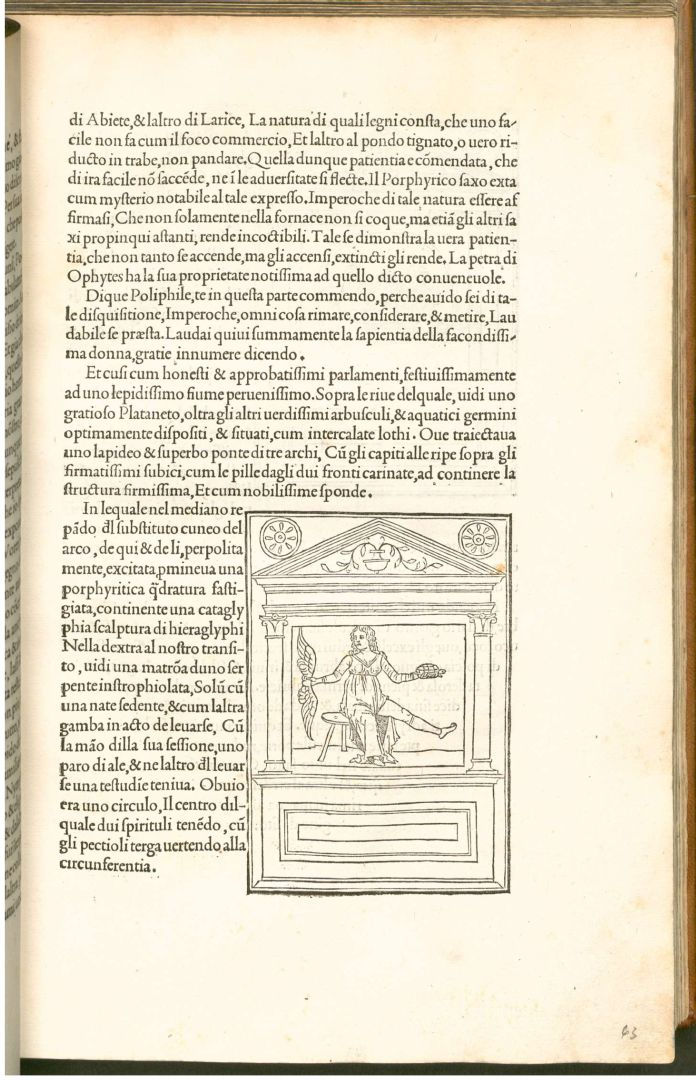 di Abiete,& laltro di Larice, La natura di quali legni consta,che uno fa-
cile non fa cum il foco commercio,Et laltro al pondo tignato,o uero ri-
ducto in trabe,non pandare.Quella dunque patientia e cõmendata, che
di ira facile nõ saccẽde, ne ĩ le aduersitate si flecte.Il Porphyrico saxo exta
cum mysterio notabile al tale expresso.Imperoche di tale natura essere af
firmasi, Che non solamente nella fornace non si coque,ma etiã gli altri sa
xi propinqui astanti, rende incoctibili. Tale se dimonstra la uera patien-
tia,che non tanto se accende,ma gli accensi,extincti gli rende. La petra di
Ophytes ha la sua proprietate notissima ad quello dicto conueneuole.
Dique Poliphile,te in questa parte commendo, perche auido sei di ta-
le disquisitione,Imperoche,omni cosa rimare,considerare,& metire,Lau
dabile se præsta. Laudai quiui summamente la sapientia della facondissi-
ma donna,gratie innumere dicendo.
Et cusi cum honesti & approbatissimi parlamenti,festiuissimamente
ad uno lepidissimo fiume peruenissimo.Sopra le riue delquale,uidi uno
gratioso Plataneto,oltra gli altri uerdissimi arbusculi,& aquatici germini
optimamente dispositi, & situati,cum intercalate lothi. Oue traiectaua
uno lapideo & superbo ponte di tre archi, Cũ gli capiti alle ripe sopra gli
firmatissimi subici,cum le pille dagli dui fronti carinate,ad continere la
structura firmissima,Et cum nobilissime sponde.
In lequale nel mediano re
pãdo dl substituto cuneo del
arco, de qui & de li,perpolita
mente,excitata,pmineua una
porphyritica qdratura fasti-
giata,continente una catagly
phia scalptura di hieraglyphi
Nella dextra al nostro transi-
to, uidi una matrõa duno ser
pente instrophiolata,Solũ cũ
una nate sedente,& cum laltra
gamba in acto de leuarse, Cũ
la mão dilla sua sessione,uno
paro di ale,& ne laltro dl leuar
se una testudĩe teniua. Obuio
era uno circulo,Il centro dil-
quale dui spirituli tenẽdo, cũ
gli pectioli terga uertendo alla
circunferentia.
63